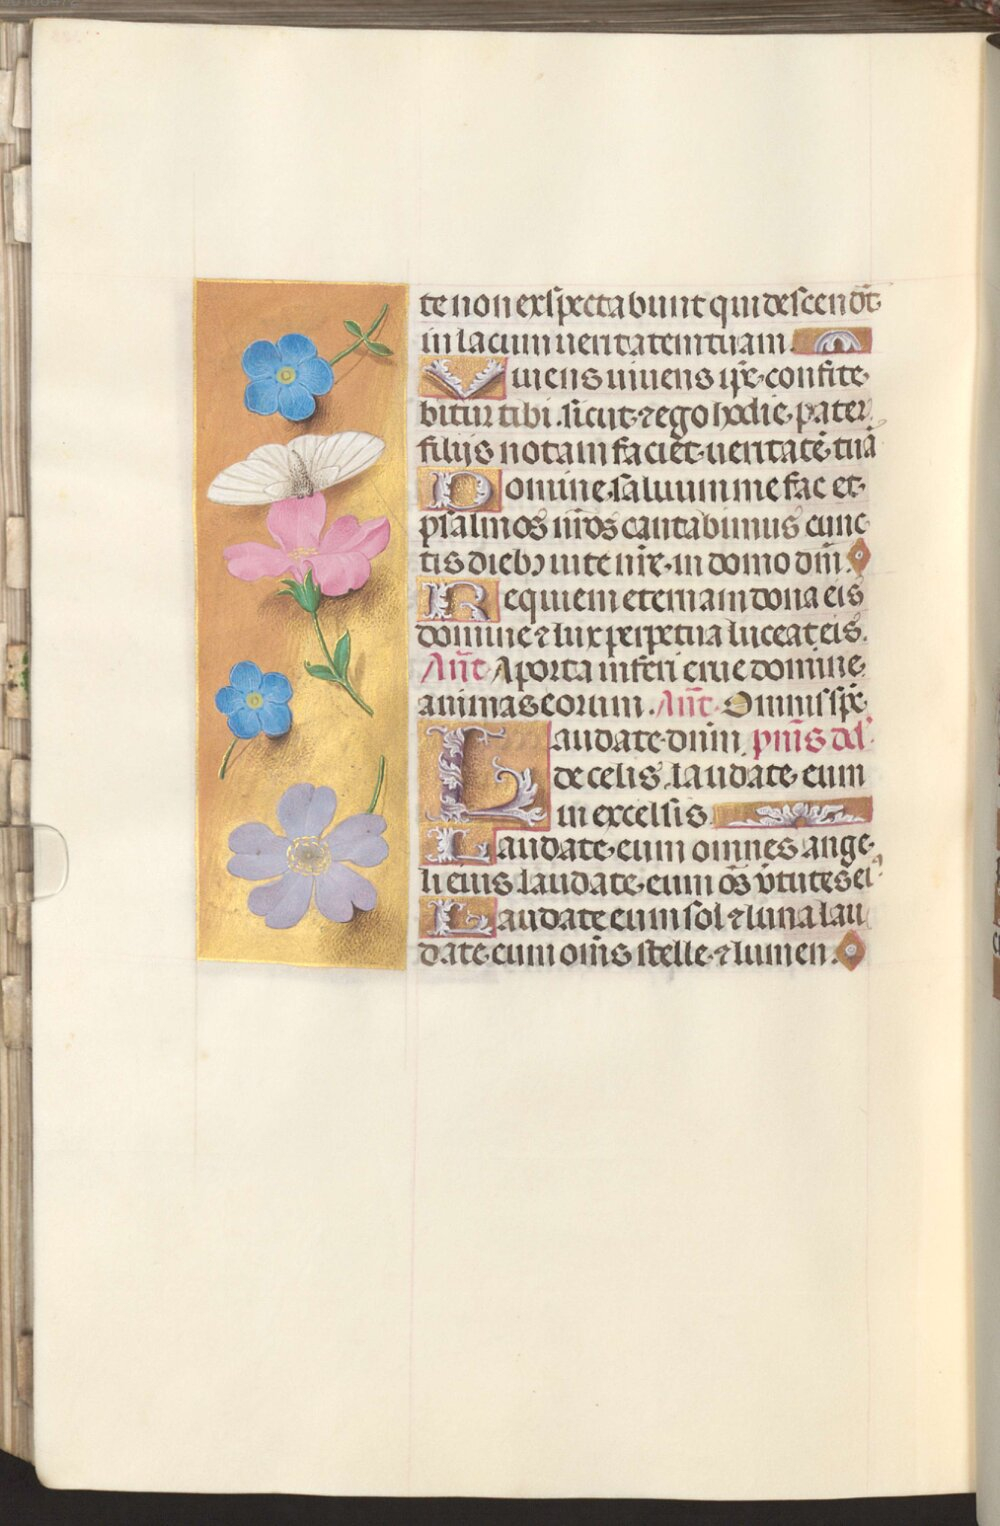 te non exspectabunt qui descendūt
in lacum ueritatem tuam.
Uiuens uiuens ip̄e confite
bitur tibi. sicut ⁊ ego hodie. pater
filijs notam faciet ueritatē tuā
Domine saluum me fac et
psalmos nr̄os cantabimus cunc
tis dieb; uite nr̄e. in domo dn̄i.
Requiem eternam dona eis
domine ⁊ lux perpetua luceat eis.
Añt Aporta inferi erue domine
animas eorum. Añt. Omnis sp̄c
Laudate dn̄m
de celis. laudate eum
in excelsis.
Laudate eum omnes ange
li eius laudate eum oēs v̄tutes ei⁹
Laudate eum sol ⁊ luna lau
date eum om̄s stelle ⁊ lumen.